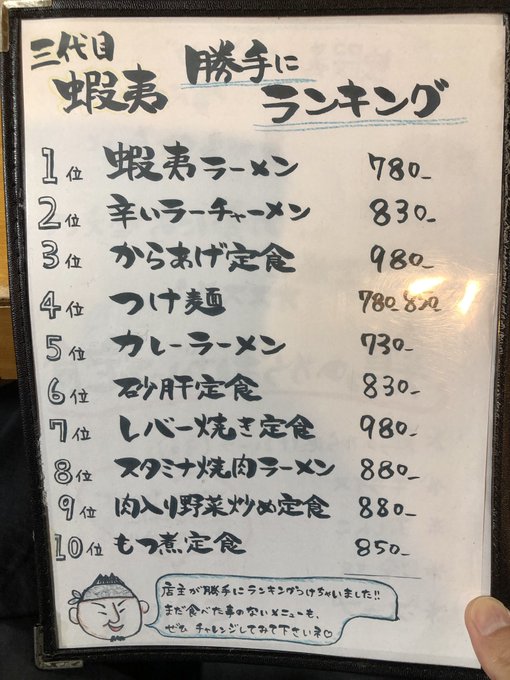 三代目
蝦夷
勝手に
ランキング
1位 蝦夷ラーメン 780-
2位 辛いラーチャーメン 830-
3位 からあげ定食 980-
4位 つけ麺 780-830-
5位 カレーラーメン 730-
6位 砂肝定食 830-
7位 レバー焼き定食 980-
8位 スタミナ焼肉ラーメン 880-
9位 肉入り野菜炒め定食 880-
10位 もつ煮定食 850-
店主が勝手にランキングつけちゃいました!!
まだ食べた事のないメニューも、
ぜひ チャレンジしてみて下さいネ♡